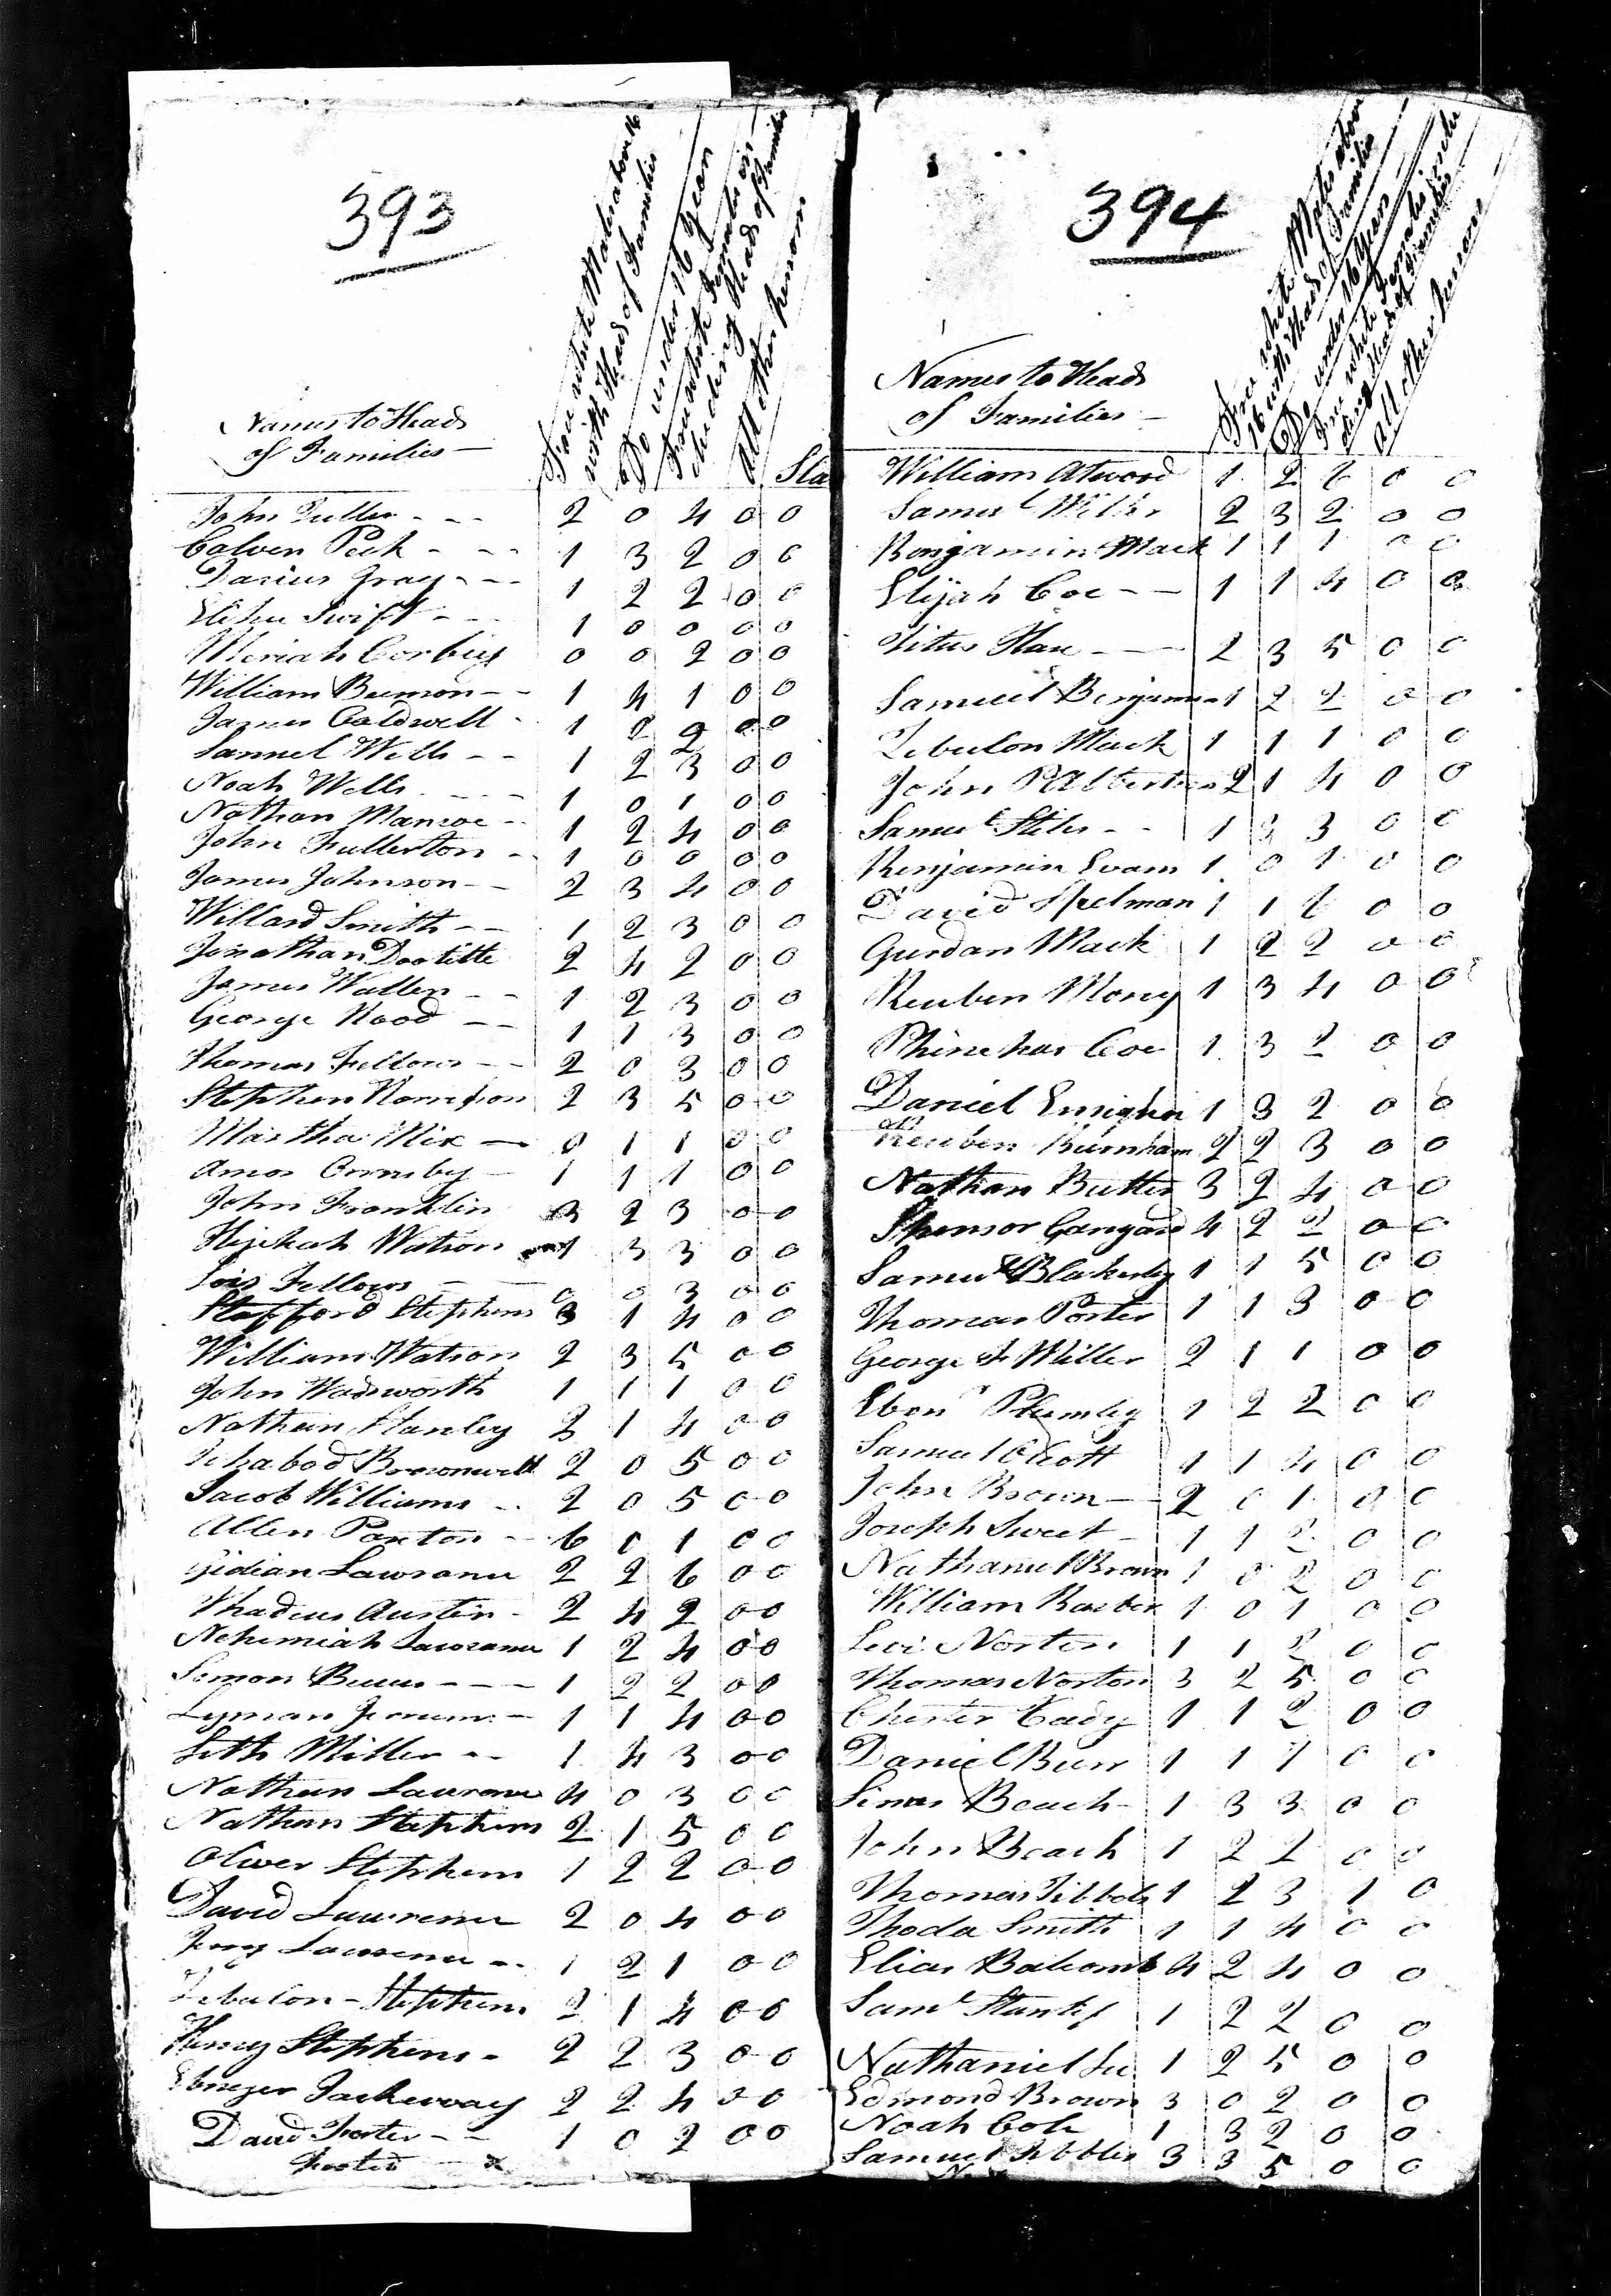 393
Names to Heads
of Families —
Free white Males above 16
with Heads of Families
Do under 16 years
Free white Females in
cluding Heads of Families
All other persons
Sla
John Fuller - - - 2 0 4 0 0
Calven Peck - - - 1 3 2 0 0
Darius Gray - - - 1 2 2 0 0
Elihu Swift - - - 1 0 0 0 0
Meriah Corbuy 0 0 2 0 0
William Bemon - - 1 4 1 0 0
James Caldwell - 1 2 2 0 0
Samuel Wells - - 1 2 3 0 0
Noah Wells - - - 1 0 1 0 0
Nathan Manroe - - 1 2 4 0 0
John Fullerton - 1 0 0 0 0
James Johnson - - 2 3 4 0 0
Willard Smith - - 1 2 3 0 0
Jonathan Doolittle 2 4 2 0 0
James Wallen - - 1 2 3 0 0
George Nood - - 1 1 3 0 0
Thomas Fellows - - 2 0 3 0 0
Stephen Harrison 2 3 5 0 0
Martha Mix — 0 1 1 0 0
Amos Ormsby - 1 1 1 0 0
John Franklin 3 2 3 0 0
Hezekiah Watson 1 3 3 0 0
Lois Fellows - - 0 0 3 0 0
Stafford Stephens 3 1 4 0 0
William Watson 2 3 5 0 0
John Wadsworth 1 1 1 0 0
Nathan Stanley 2 1 4 0 0
Ichabod Brownwell 2 0 5 0 0
Jacob Williams - - 2 0 5 0 0
Allen Panton - - 6 0 1 0 0
Gidian Lawranu 2 2 6 0 0
Thadeus Austin - 2 4 2 0 0
Nehemiah Lawranu 1 2 4 0 0
Simon 1 2 2 0 0
Lyman 1 1 4 0 0
Seth Miller - - 1 4 3 0 0
Nathan Lawranu 4 0 3 0 0
Nathan Stephens 2 1 5 0 0
Oliver Stephens 1 2 2 0 0
David Lawrenu 2 0 4 0 0
Jerry Lawrenu - - 1 2 1 0 0
Zebulon - Stephens 2 1 4 0 0
Henry Stephens - 2 2 3 0 0
Ebnezer Jackeway 2 2 4 0 0
David Foster - - 1 0 2 0 0
394
Names to Heads
of Families —
Free white Males above
16 with Heads of Families
Do under 16 years
Free white Females inclu
ding Heads of Families
All other persons
William Atwood 1 2 6 0 0
Samuel Miller 2 3 2 0 0
Benjamin Mack 1 1 1 0 0
Elijah Coe - - 1 1 4 0 0
Titus Hau - — 2 3 5 0 0
Samuel Benjamin 1 2 2 0 0
Zebulon Mack 1 1 1 0 0
John P Albertson 2 1 4 0 0
Samuel Stiles - - 1 3 3 0 0
Benjamin Evans 1 0 1 0 0
David Spelman 1 1 6 0 0
Gurdan Mack 1 2 2 0 0
Reuben Morey 1 3 4 0 0
Phinehas Coe 1 3 2 0 0
Daniel Ensighn 1 3 2 0 0
Reuben Burnham 2 2 3 0 0
Nathan Butler 3 2 4 0 0
Spensor Gangard 4 2 2 0 0
Samuel Blakesley 1 1 5 0 0
Thomas Porter 1 1 3 0 0
George F Miller 2 1 1 0 0
Ebenr Plumley 1 2 2 0 0
Samuel Olcott 1 1 4 0 0
John Brown — 2 0 1 0 0
Joseph Sweet - 1 1 2 0 0
Nathanul Brown 1 0 2 0 0
William Barber 1 0 1 0 0
Levi Norton 1 1 2 0 0
Thomas Norton 3 2 5 0 0
Chester Cady 1 1 2 0 0
Daniel Burr 1 1 1 0 0
Beach - 1 3 3 0 0
John Beach 1 2 2 0 0
Thomas Tibbols 1 2 3 1 0
Rhoda Smith 1 1 4 0 0
Elias Balcomb 4 2 4 0 0
Saml Stanley 1 2 2 0 0
Nathaniel Lee 1 2 5 0 0
Edmond Brown 3 0 2 0 0
Noah Cole 1 3 2 0 0
Samuel Tibbles 3 3 5 0 0